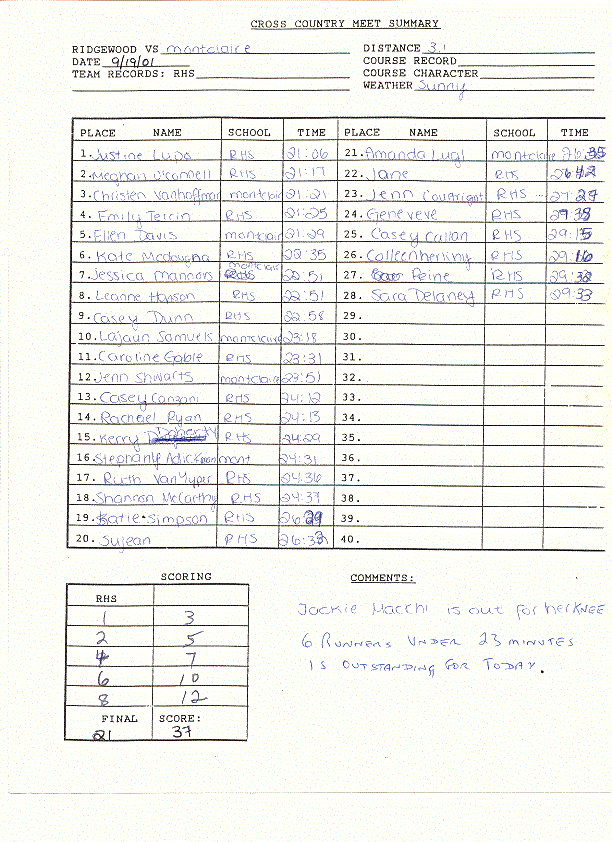 CROSS COUNTRY MEET SUMMARY
RIDGEWOOD VS montclaire DISTANCE 3.1
DATE 9/19/01 COURSE RECORD
TEAM RECORDS: RHS COURSE CHARACTER
WEATHER Sunny
PLACE NAME SCHOOL TIME PLACE NAME SCHOOL TIME
1. Justine Lupo RHS 21:06 21. Amanda Lugl montclaire 26:35
2. Meghan O'connell RHS 21:17 22. Jane RHS 26:42
3. Christen Vanhoffman montclair 21:21 23. Jenn Courtright RHS 27:27
4. Emily Tercin RHS 21:25 24. Geneveve RHS
5. Ellen Davis montclair 21:29 25. Casey Callan RHS 29:15
6. Kate Mcdougha RHS 22:35 26. Colleen RHS 29:16
7. Jessica Mannors montclair 22:51 27. Peine RHS 29:32
8. Leanne Hanson RHS 22:51 28. Sara Delaney RHS 29:33
9. Casey Dunn RHS 22:58 29.
10. Lajaun Samuels montclaire 23:18 30.
11. Caroline Gable RHS 23:31 31.
12. Jenn Shwarts montclaire 23:51 32.
13. Casey RHS 24:12 33.
14. Rachael Ryan RHS 24:13 34.
15. Kerry Doherty RHS 24:29 35.
16. Stephanie mont 24:31 36.
17. Ruth VanHyper RHS 24:36 37.
18. Shannon McCarthy RHS 24:37 38.
19. Katie Simpson RHS 26:29 39.
20. Sujean RHS 26:33 40.
SCORING COMMENTS:
RHS
1 3
2 5
4 7
6 10
8 12
FINAL SCORE:
21 37
Jackie Macchi is out for her KNEE
6 RUNNERS UNDER 23 MINUTES
IS OUTSTANDING FOR TODAY.